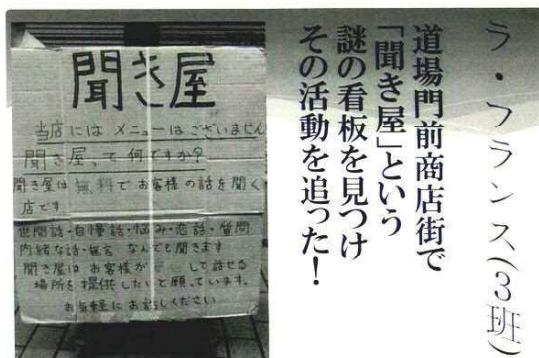 ラ・フランス(3班)
道場門前商店街で
「聞き屋」という
謎の看板を見つけ
その活動を追った!
聞き屋
当店には メニューはございません
聞き屋、って何ですか?
聞き屋は 無料で お客様の話を聞く
店です
世間話・自慢話・悩み・恋話・質問
内緒な話・宣言 なんでも聞きます
聞き屋は お客様が して話せる
場所を提供したいと願っています。
お気軽に お話しください